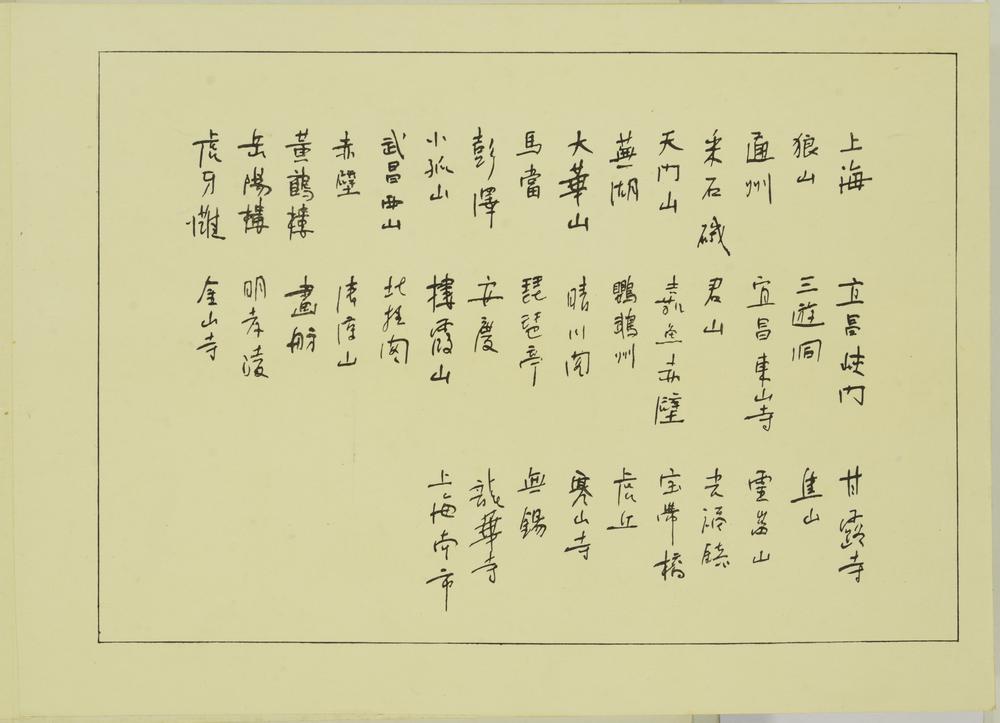 上海
狼山
通州
采石磯
天門山
蕪湖
大華山
馬當
彭澤
小孤山
武昌西山
赤壁
黃鶴樓
岳陽樓
虎牙灘
宜昌峽內
三遊洞
宜昌東山寺
君山
嘉魚赤壁
鸚鵡州
晴川閣
琵琶亭
安慶
棲霞山
北極閣
清涼山
畫舫
明孝陵
金山寺
甘露寺
焦山
靈嵒山
光福鎮
宝帯橋
虎丘
寒山寺
無錫
龍華寺
上海南市